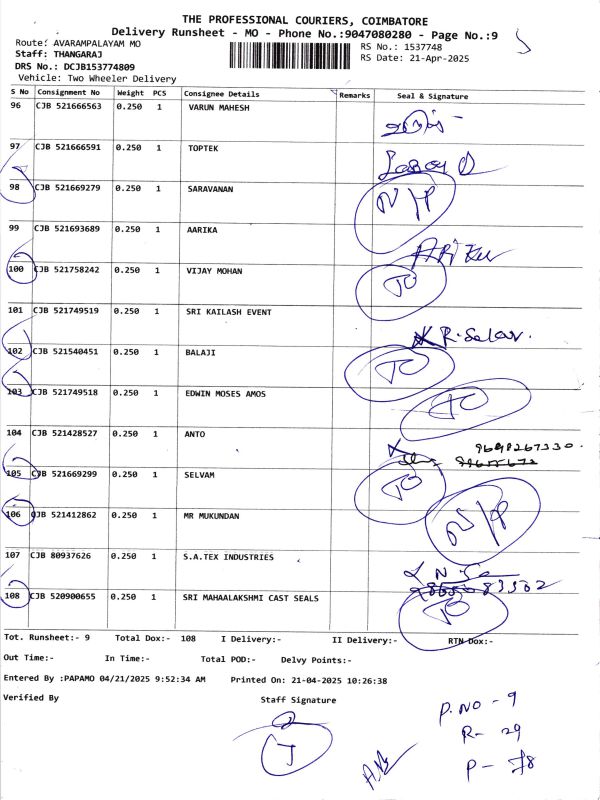 THE PROFESSIONAL COURIERS, COIMBATORE
Delivery Runsheet - MO - Phone No.:9047080280 - Page No.:9
Route: AVARAMPALAYAM MO
RS No.: 1537748
Staff: THANGARAJ
RS Date: 21-Apr-2025
DRS No.: DCJB153774809
Vehicle: Two Wheeler Delivery
S No Consignment No Weight PCS Consignee Details Remarks Seal & Signature
96 CJB 521666563 0.250 1 VARUN MAHESH
97 CJB 521666591 0.250 1 TOPTEK
98 CJB 521669279 0.250 1 SARAVANAN N/P
99 CJB 521693689 0.250 1 AARIKA
100 CJB 521758242 0.250 1 VIJAY MOHAN TO
101 CJB 521749519 0.250 1 SRI KAILASH EVENT
102 CJB 521540451 0.250 1 BALAJI TO
103 CJB 521749518 0.250 1 EDWIN MOSES AMOS TO
104 CJB 521428527 0.250 1 ANTO
105 CJB 521669299 0.250 1 SELVAM TO
106 CJB 521412862 0.250 1 MR MUKUNDAN N/P
107 CJB 80937626 0.250 1 S.A.TEX INDUSTRIES
108 CJB 520900655 0.250 1 SRI MAHAALAKSHMI CAST SEALS TO
Tot. Runsheet:- 9 Total Dox:- 108 I Delivery:- II Delivery:- RTN Dox:-
Out Time:- In Time:- Total POD:- Delvy Points:-
Entered By :PAPAMO 04/21/2025 9:52:34 AM Printed On: 21-04-2025 10:26:38
Verified By Staff Signature
P.NO - 9
R- 29
P - 78